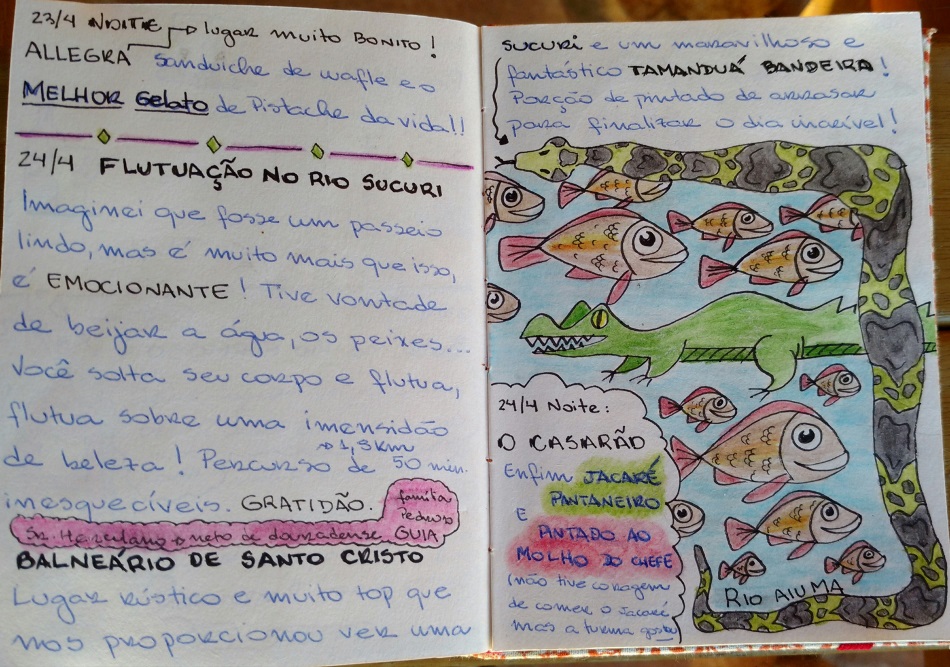 23/4 NOITE → lugar muito BONITO!
ALLEGRA sanduiche de wafle e o
MELHOR Gelato de Pistache da vida!!
24/4 FLUTUAÇÃO NO RIO SUCURI
Imaginei que fosse um passeio
lindo, mas é muito mais que isso,
é EMOCIONANTE! Tive vontade
de beijar a água, os peixes...
Você solta seu corpo e flutua,
flutua sobre uma imensidão
de beleza! Percurso de 50 min.
→ 1,8 km
inesquecíveis. GRATIDÃO.
família
Pedroso
Sr. Herculano o neto de douradense GUIA
BALNEÁRIO DE SANTO CRISTO
Lugar rústico e muito top que
nos proporcionou ver uma
SUCURI e um maravilhoso e
fantástico TAMANDUÁ BANDEIRA!
Porção de pintado de arrasar
para finalizar o dia incrível!
24/4 Noite:
O CASARÃO
Enfim JACARÉ
PANTANEIRO
E
PINTADO AO
MOLHO DO CHEFE
(não tive coragem
de comer o Jacaré
mas a turma gostou
RIO AIUMA